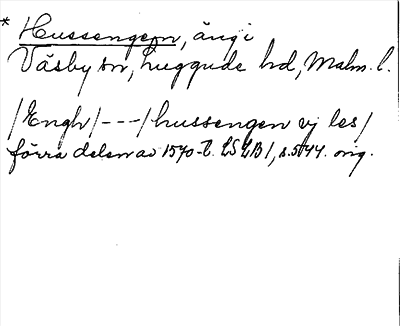 * Hussengen, äng i
Väsby sn, Luggude hd, Malm. l.
/Engh/ --- / hussengen vj les/
förra delen av 1570-t. LSLB 1, s. 544. orig.